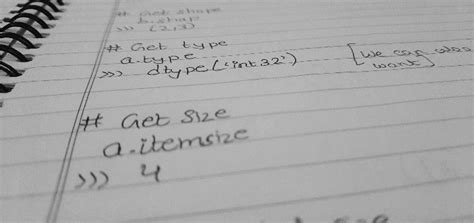 # Get shape
b.shap
>>> (2,3)
# Get type
a.type
>>> dtype('int32') [We can also
want]
# Get Size
a.itemsize
>>> 4